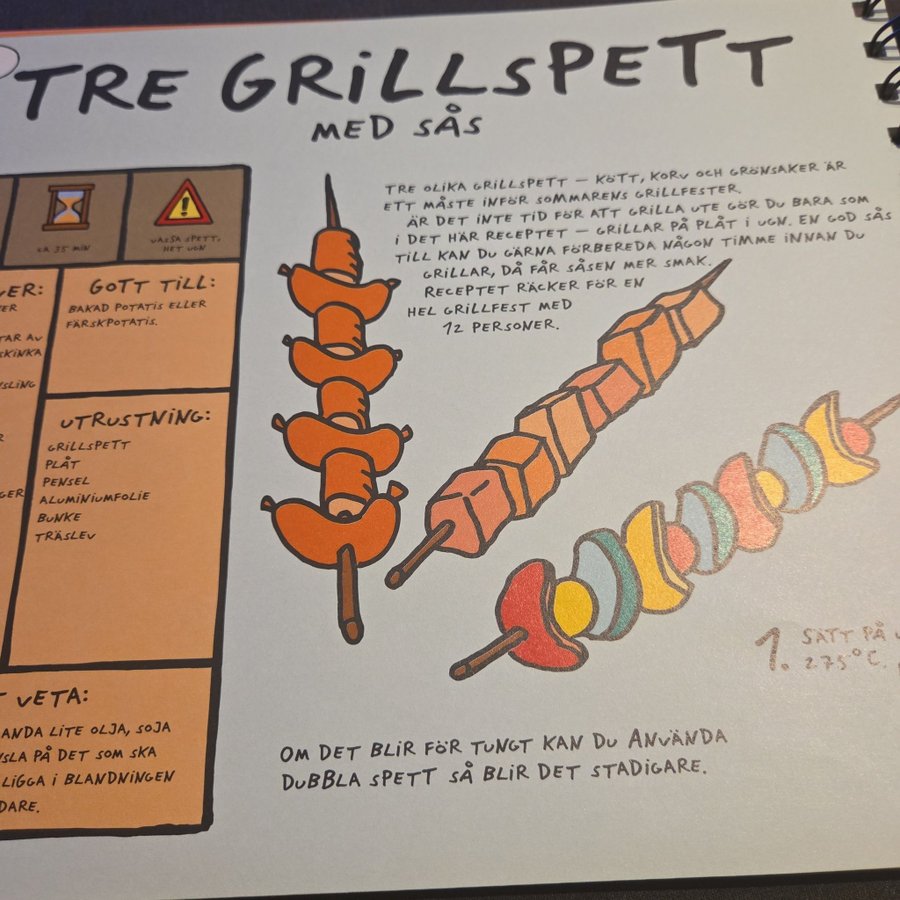 TRE GRILLSPETT
MED SÅS
CA 35 MIN
VASSA SPETT,
HET UGN
TRE OLIKA GRILLSPETT – KÖTT, KORV OCH GRÖNSAKER ÄR
ETT MÅSTE INFÖR SOMMARENS GRILLFESTER.
ÄR DET INTE TID FÖR ATT GRILLA UTE GÖR DU BARA SOM
I DET HÄR RECEPTET – GRILLAR PÅ PLÅT I UGN. EN GOD SÅS
TILL KAN DU GÄRNA FÖRBEREDA NÅGON TIMME INNAN DU
GRILLAR, DÅ FÅR SÅSEN MER SMAK.
RECEPTET RÄCKER FÖR EN
HEL GRILLFEST MED
12 PERSONER.
GER:
ER
TAR AV
SKINKA
YSLING
R
GER
GOTT TILL:
BAKAD POTATIS ELLER
FÄRSKPOTATIS.
UTRUSTNING:
GRILLSPETT
PLÅT
PENSEL
ALUMINIUMFOLIE
BUNKE
TRÄSLEV
T VETA:
ANDA LITE OLJA, SOJA
SLA PÅ DET SOM SKA
LIGGA I BLANDNINGEN
DARE.
1. SÄTT PÅ
275°C.
OM DET BLIR FÖR TUNGT KAN DU ANVÄNDA
DUBBLA SPETT SÅ BLIR DET STADIGARE.